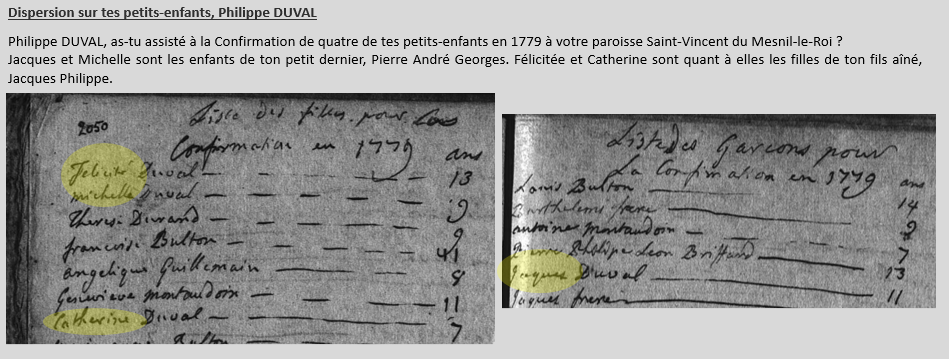 Dispersion sur tes petits-enfants, Philippe DUVAL
Philippe DUVAL, as-tu assisté à la Confirmation de quatre de tes petits-enfants en 1779 à votre paroisse Saint-Vincent du Mesnil-le-Roi ?
Jacques et Michelle sont les enfants de ton petit dernier, Pierre André Georges. Félicitée et Catherine sont quant à elles les filles de ton fils aîné,
Jacques Philippe.
2050
Liste des filles pour
Confirmation en 1779 ans
Felicité Duval 13
michelle Duval 9
Therese Durand 9
francoise Bulton
angelique Guillemain 8
Genevieve montaudoin 11
Catherine Duval 7
Liste des Garcons pour
La Confirmation en 1779 ans
Louis Bulton 14
Barthelemi frere 9
antoine montaudoin 7
Pierre Philipe Leon Briffard 13
Jaques Duval 11
Jaques frere